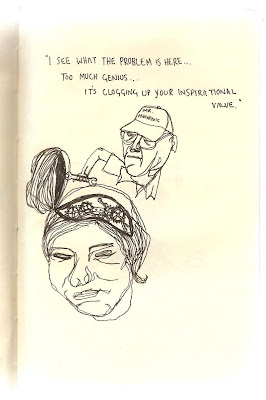 "I SEE WHAT THE PROBLEM IS HERE...
TOO MUCH GENIUS...
IT'S CLOGGING UP YOUR INSPIRATIONAL
VALVE."
MR.
MECHANIC